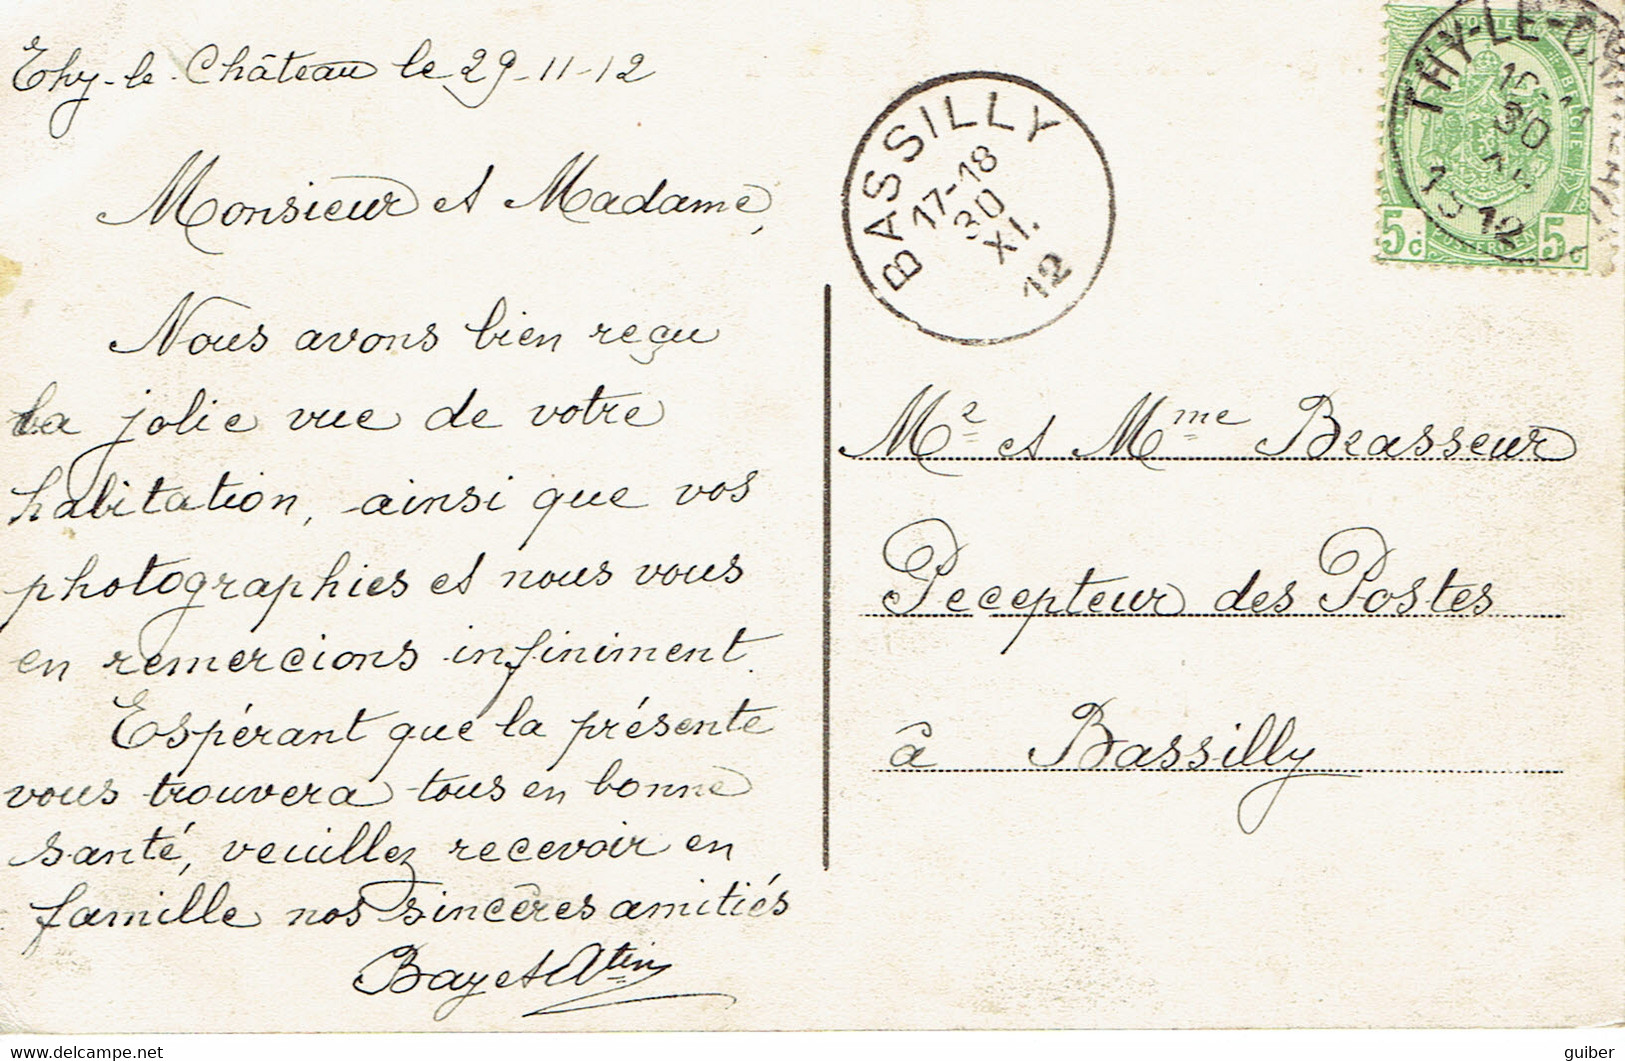 Thy-le-Château le 29-11-12
Monsieur et Madame,
Nous avons bien reçu
la jolie vue de votre
habitation, ainsi que vos
photographies et nous vous
en remercions infiniment.
Espérant que la présente
vous trouvera tous en bonne
santé, veuillez recevoir en
famille nos sincères amitiés
Bayet Atin
BASSILLY
17-18
30
XI.
12
THY-LE-CHATEAU
30
1912
POSTES
BELGIE
5c
POSTERIJEN
5c
Mr et Mme Brasseur
Percepteur des Postes
à Bassilly
delcampe.net
guiber